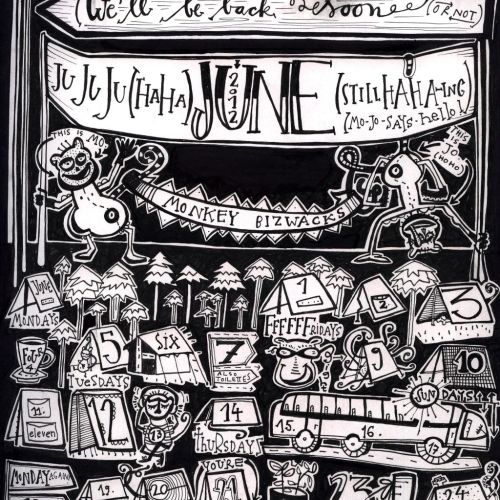 (We'll be back soon (OR NOT)
JU JU JU (HAHA) JUNE 2012 (STILL HAHA-ING
(MO-JO-SAYS-hello!)
THIS IS MO
THIS IS JO (HOHO)
MONKEY BIZWACKS
JUNE
MONDAYS
1
FFFFFFRIDAYS
2
3
FOUR 4
5
TUESDAYS
SIX
7
ALSO TOILETTES
9
10
SUNDAYS
11.
eleven
12
13
14
THURSDAYS
15.
16.
17
MONDAY AGAIN
19.
20
YOU'RE
21
23